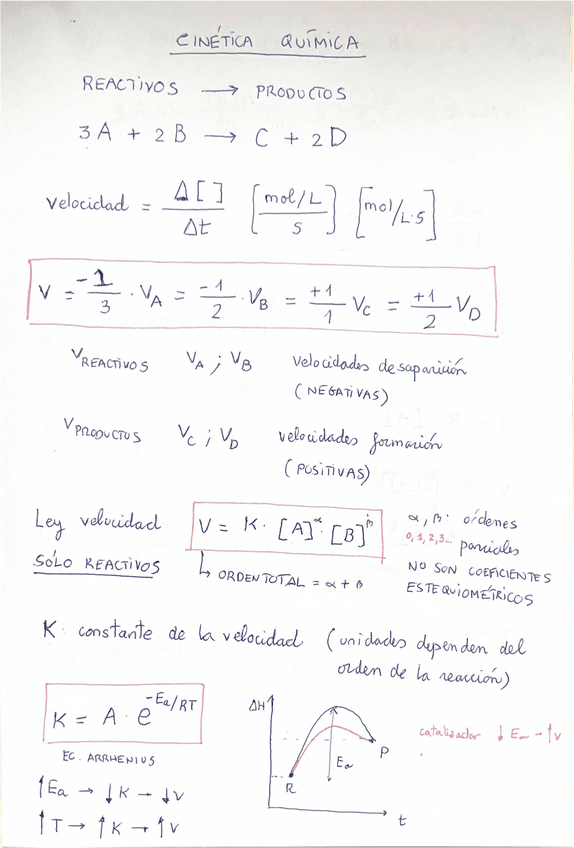 CINÉTICA QUÍMICA
REACTIVOS → PRODUCTOS
3A + 2B → C + 2D
Velocidad = Δ[ ]/Δt [mol/L / s] [mol/L·s]
V = -1/3 · VA = -1/2 · VB = +1/1 VC = +1/2 VD
VREACTIVOS VA ; VB velocidades desaparición
(NEGATIVAS)
VPRODUCTOS VC ; VD velocidades formación
(POSITIVAS)
Ley velocidad V = K · [A]^α · [B]^β α, β: órdenes
0, 1, 2, 3... parciales
SÓLO REACTIVOS ↳ ORDEN TOTAL = α + β NO SON COEFICIENTES
ESTEQUIOMÉTRICOS
K · constante de la velocidad (unidades dependen del
orden de la reacción)
K = A · e^-Ea/RT
EC. ARRHENIUS
↑Ea → ↓K → ↓V
↑T → ↑K → ↑V
ΔH
Ea
R
P
t
catalizador ↓ Ea → ↑V